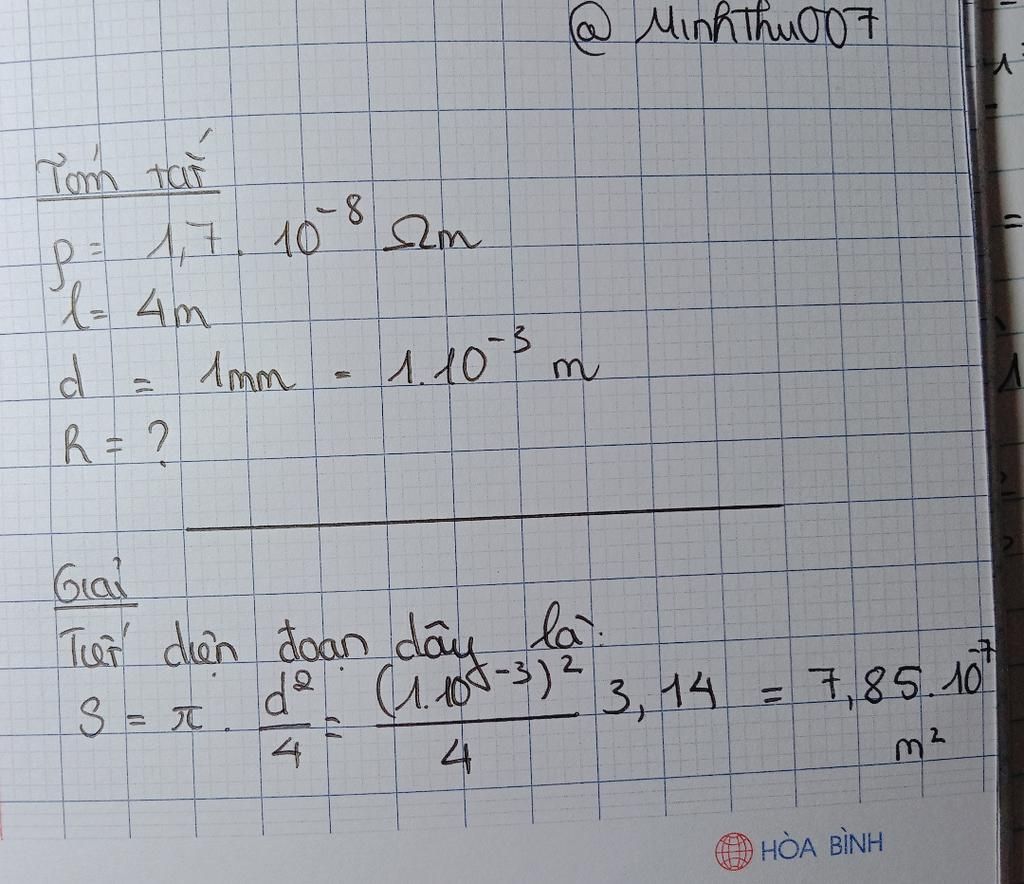 @ MinhThu007
Tóm tắt
ρ = 1,7. 10⁻⁸ Ωm
l = 4m
d = 1mm = 1.10⁻³ m
R = ?
Giải
Tiết diện đoạn dây là:
S = π . d²/4 = (1.10⁻³)²/4 3,14 = 7,85.10⁻⁷
m²
HÒA BÌNH